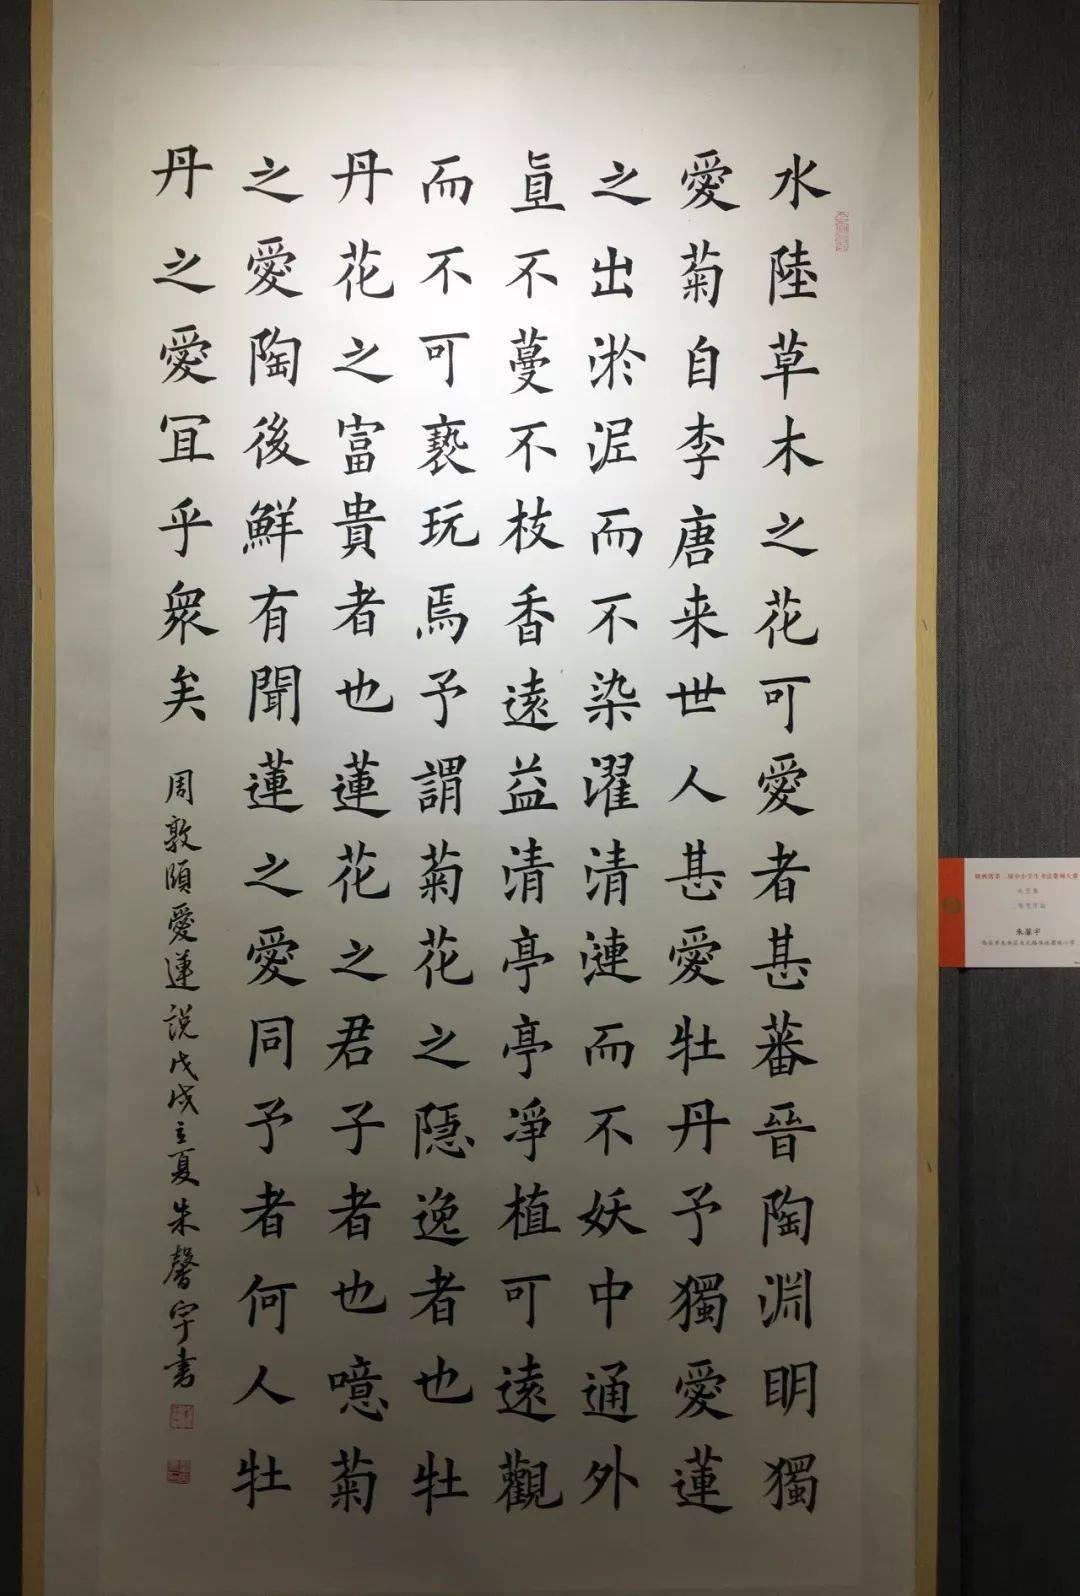 水陸草木之花可愛者甚蕃晉陶淵明獨
愛菊自李唐来世人甚愛牡丹予獨愛蓮
之出淤泥而不染濯清漣而不妖中通外
直不蔓不枝香遠益清亭亭淨植可遠觀
而不可褻玩焉予謂菊花之隱逸者也牡
丹花之富貴者也蓮花之君子者也噫菊
之愛陶後鮮有聞蓮之愛同予者何人牡
丹之愛宜乎衆矣
周敦頤愛蓮説戊戌立夏朱馨宇書
朱馨宇